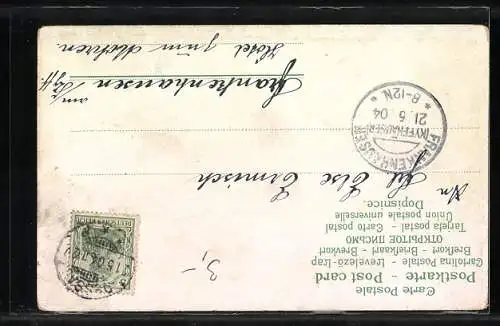 Carte Postale
Postkarte - Post card
Cartolina Postale - Levelező-lap
Brefkort - Briefkaart - Brevkort
ОТКРЫТОЕ ПИСЬМО
Tarjeta postal - Carto postal
Union postale universelle
Dopisnice.
3,-
FRANKENHAUSEN
(KYFFHÄUSER)
21.5.04
* 8-12N. *
An
Frl Else Ermisch
Frankenhausen
am Kyffh.
Hotel zum Mohren